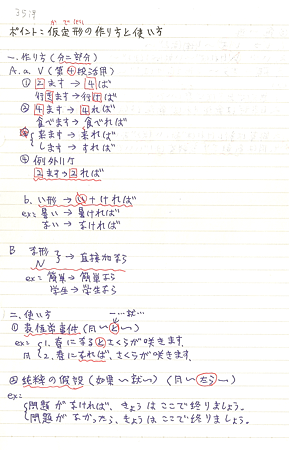 35課
かていけい
ポイント：仮定形の作り方と使い方
一.作り方（分二部分）
A.a V（第④段活用）
① 2ます → 4ば
行きます→行けば
② 4ます → 4れば
食べます→食べれば
③ 来ます→来れば
します→すれば
④ 例外11ケ
2ます→2れば
b. い形→い+ければ
ex=暑い→暑ければ
ない→なければ
B な形 N }→直接加なら
ex=簡単→簡単なら
学生→学生なら
二、使い方 一…就…
① 表恒常事件（同～と～）
ex= 1.春になるとさくらが咲きます.
同 2.春になれば、さくらが咲きます.
② 純粋の仮設（如果～就～）（同～たら～）
ex=
問題がなければ、きょうはここで終りましょう。
問題がなかったら、きょうはここで終りましょう。